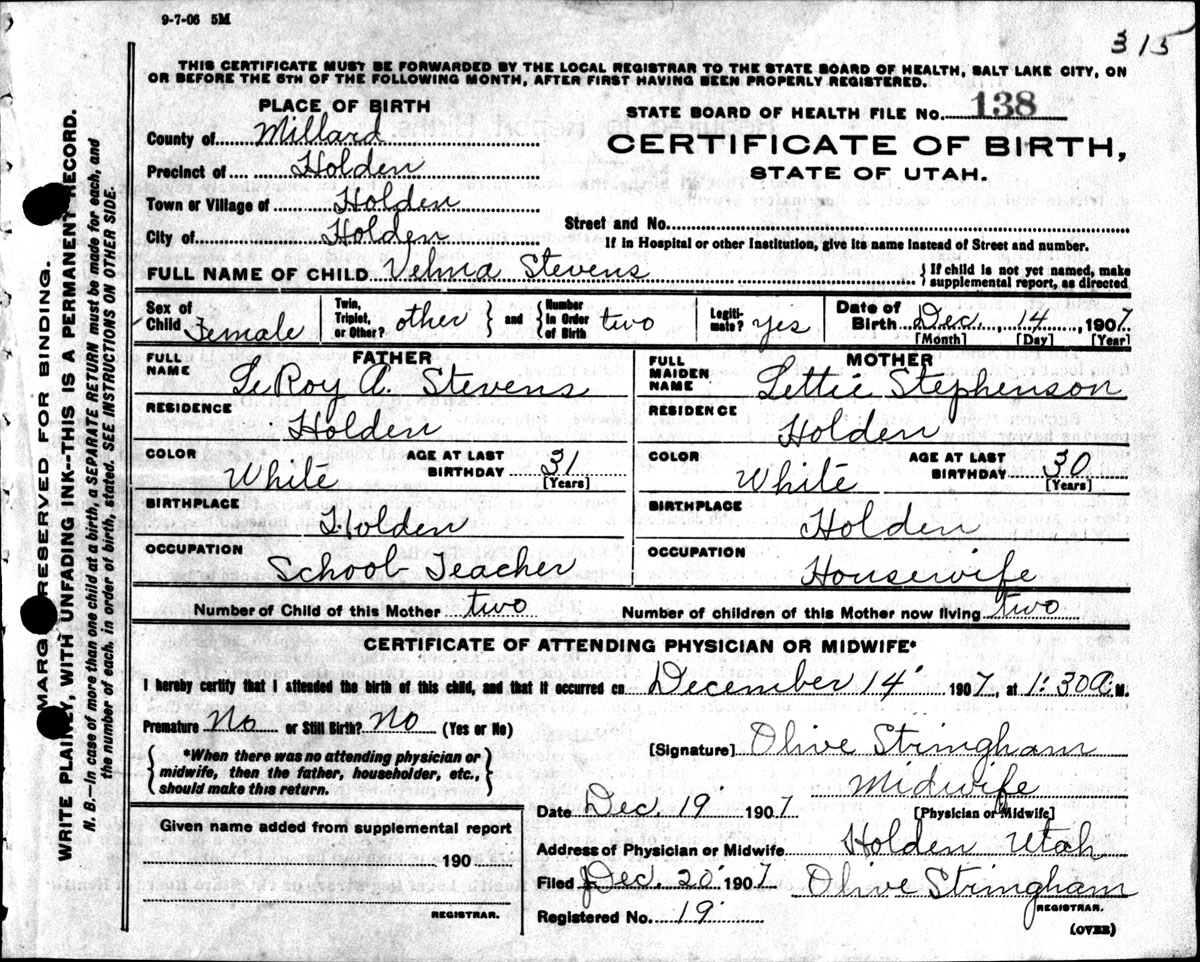 9-7-06 5M
315
THIS CERTIFICATE MUST BE FORWARDED BY THE LOCAL REGISTRAR TO THE STATE BOARD OF HEALTH, SALT LAKE CITY, ON
OR BEFORE THE 5TH OF THE FOLLOWING MONTH, AFTER FIRST HAVING BEEN PROPERLY REGISTERED.
PLACE OF BIRTH
County of Millard
Precinct of Holden
Town or Village of Holden
City of Holden
STATE BOARD OF HEALTH FILE No. 138
CERTIFICATE OF BIRTH,
STATE OF UTAH.
Street and No.
If in Hospital or other Institution, give its name instead of Street and number.
FULL NAME OF CHILD Velma Stevens
{ If child is not yet named, make
supplemental report, as directed
Sex of Child Female
Twin, Triplet, or Other? other } and { Number in Order of Birth two
Legiti-mate? yes
Date of Birth Dec, 14, 1907
[Month] [Day] [Year]
FATHER
FULL NAME LeRoy A. Stevens
RESIDENCE Holden
COLOR White AGE AT LAST BIRTHDAY 31 [Years]
BIRTHPLACE Holden
OCCUPATION School Teacher
MOTHER
FULL MAIDEN NAME Lettie Stephenson
RESIDENCE Holden
COLOR White AGE AT LAST BIRTHDAY 30 [Years]
BIRTHPLACE Holden
OCCUPATION Housewife
Number of Child of this Mother two Number of children of this Mother now living two
CERTIFICATE OF ATTENDING PHYSICIAN OR MIDWIFE*
I hereby certify that I attended the birth of this child, and that it occurred on December 14 1907, at 1:30 A.M.
Premature No or Still Birth? No (Yes or No)
{ *When there was no attending physician or
midwife, then the father, householder, etc.,
should make this return. }
[Signature] Olive Stringham
Midwife
[Physician or Midwife]
Date Dec. 19 1907
Address of Physician or Midwife Holden Utah
Filed Dec. 20 1907 Olive Stringham
REGISTRAR.
Registered No. 19
(OVER)
Given name added from supplemental report
190
REGISTRAR.
MARGIN RESERVED FOR BINDING.
WRITE PLAINLY, WITH UNFADING INK--THIS IS A PERMANENT RECORD.
N. B.--In case of more than one child at a birth, a SEPARATE RETURN must be made for each, and
the number of each, in order of birth, stated. SEE INSTRUCTIONS ON OTHER SIDE.